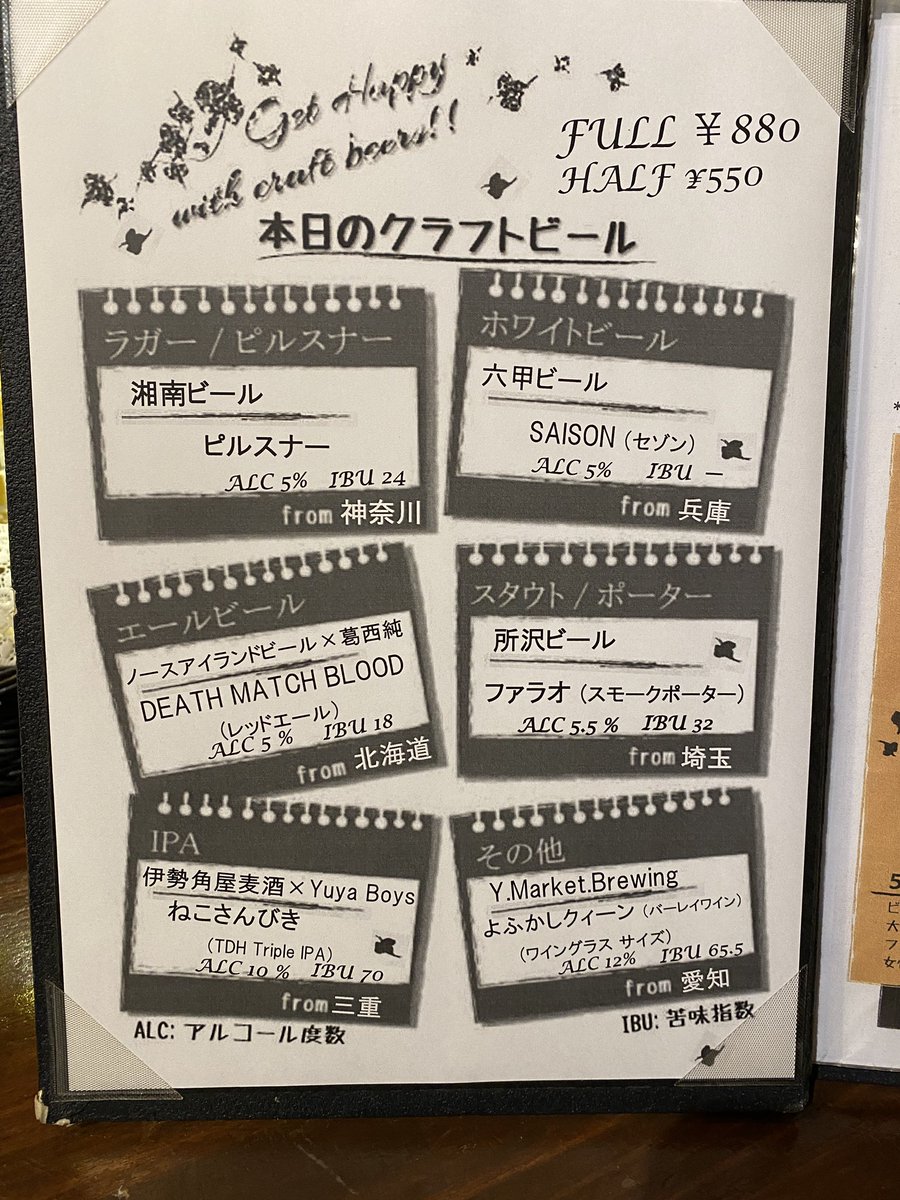 Get Happy
with craft beers!!
FULL ¥880
HALF ¥550
本日のクラフトビール
ラガー / ピルスナー
湘南ビール
ピルスナー
ALC 5% IBU 24
from 神奈川
ホワイトビール
六甲ビール
SAISON (セゾン)
ALC 5% IBU －
from 兵庫
エールビール
ノースアイランドビール×葛西純
DEATH MATCH BLOOD
(レッドエール)
ALC 5 % IBU 18
from 北海道
スタウト / ポーター
所沢ビール
ファラオ (スモークポーター)
ALC 5.5 % IBU 32
from 埼玉
IPA
伊勢角屋麦酒×Yuya Boys
ねこさんびき
(TDH Triple IPA)
ALC 10 % IBU 70
from 三重
その他
Y.Market.Brewing
よふかしクィーン (バーレイワイン)
(ワイングラス サイズ)
ALC 12% IBU 65.5
from 愛知
ALC: アルコール度数
IBU: 苦味指数